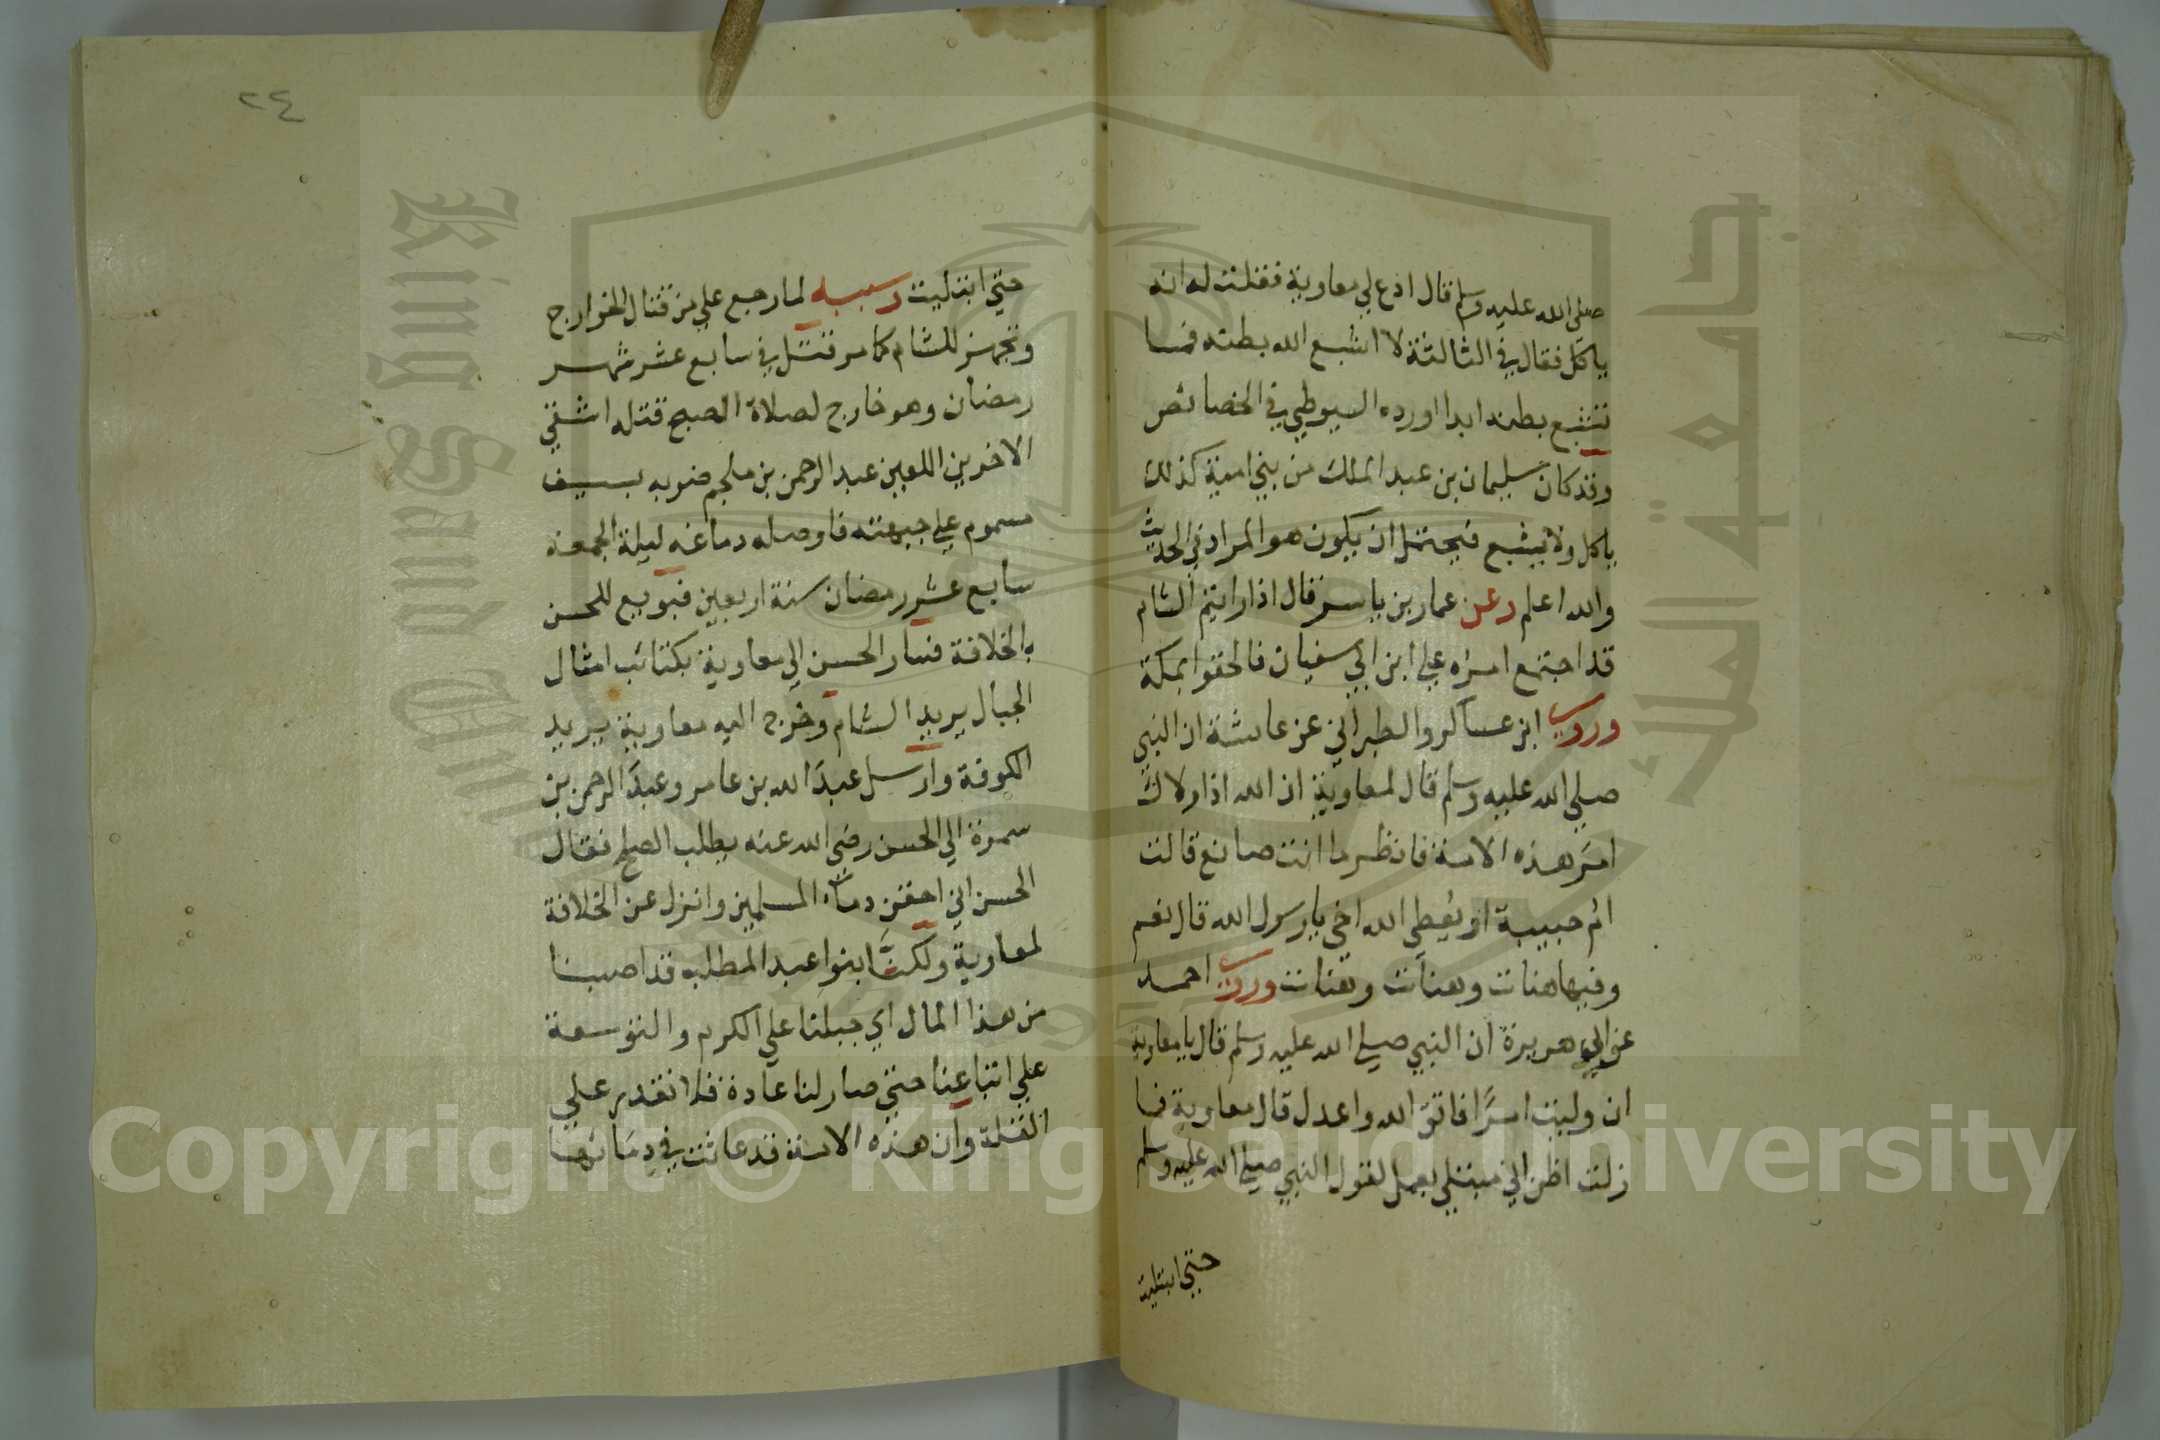 صلى الله عليه وسلم قال ادع لي معاوية فقلت له انه
ياكل فقال في الثالثة لا اشبع الله بطنه فما
تشبع بطنه ابدا اورده السيوطي في الخصائص
وقد كان سليمان بن عبد الملك من بني امية كذلك
ياكل ولا يشبع فيحتمل ان يكون هو المراد في الحديث
والله اعلم وعن عمار بن ياسر قال اذا رايتم الشام
قد اجتمع امره علي ابن ابي سفيان فالحقوا بمكة
وروي ابن عساكر والطبراني عن عائشة ان النبي
صلي الله عليه وسلم قال لمعاوية ان الله اذا ولاك
امر هذه الامة فانظر ما انت صانع قالت
ام حبيبة او يعطي الله اخي يا رسول الله قال نعم
وفيها هنات وهنات وهنات وروي احمد
عن ابي هريرة ان النبي صلي الله عليه وسلم قال يا معاوية
ان وليت امرًا فاتق الله واعدل قال معاوية فما
زلت اظن اني مبتلي بعمل لقول النبي صلي الله عليه وسلم
حتي ابتليت
٢٤
حتي ابتليت وسببه لما رجع علي من قتال الخوارج
وتجهز للشام كما مر قتل في سابع عشر شهر
رمضان وهو خارج لصلاة الصبح قتله اشقي
الاخرين اللعين عبد الرحمن بن ملجم ضربه بسيف
مسموم علي جبهته فاوصله دماغه ليلة الجمعة
سابع عشر رمضان سنة اربعين فبويع للحسن
بالخلافة فسار الحسن الي معاوية بكتائب امثال
الجبال يريد الشام وخرج اليه معاوية يريد
الكوفة وارسل عبد الله بن عامر وعبد الرحمن بن
سمرة الي الحسن رضي الله عنه يطلب الصلح فقال
الحسن اني احقن دماء المسلمين وانزل عن الخلافة
لمعاوية ولكنَّا بنوا عبد المطلب قد اصبنا
من هذا المال اي جبلنا علي الكرم والتوسعة
علي اتباعنا حتي صار لنا عادة فلا نقدر علي
القلة وان هذه الامة قد عاثت في دمائها
King Saud University
جامعة الملك
1957
Copyright © King Saud University